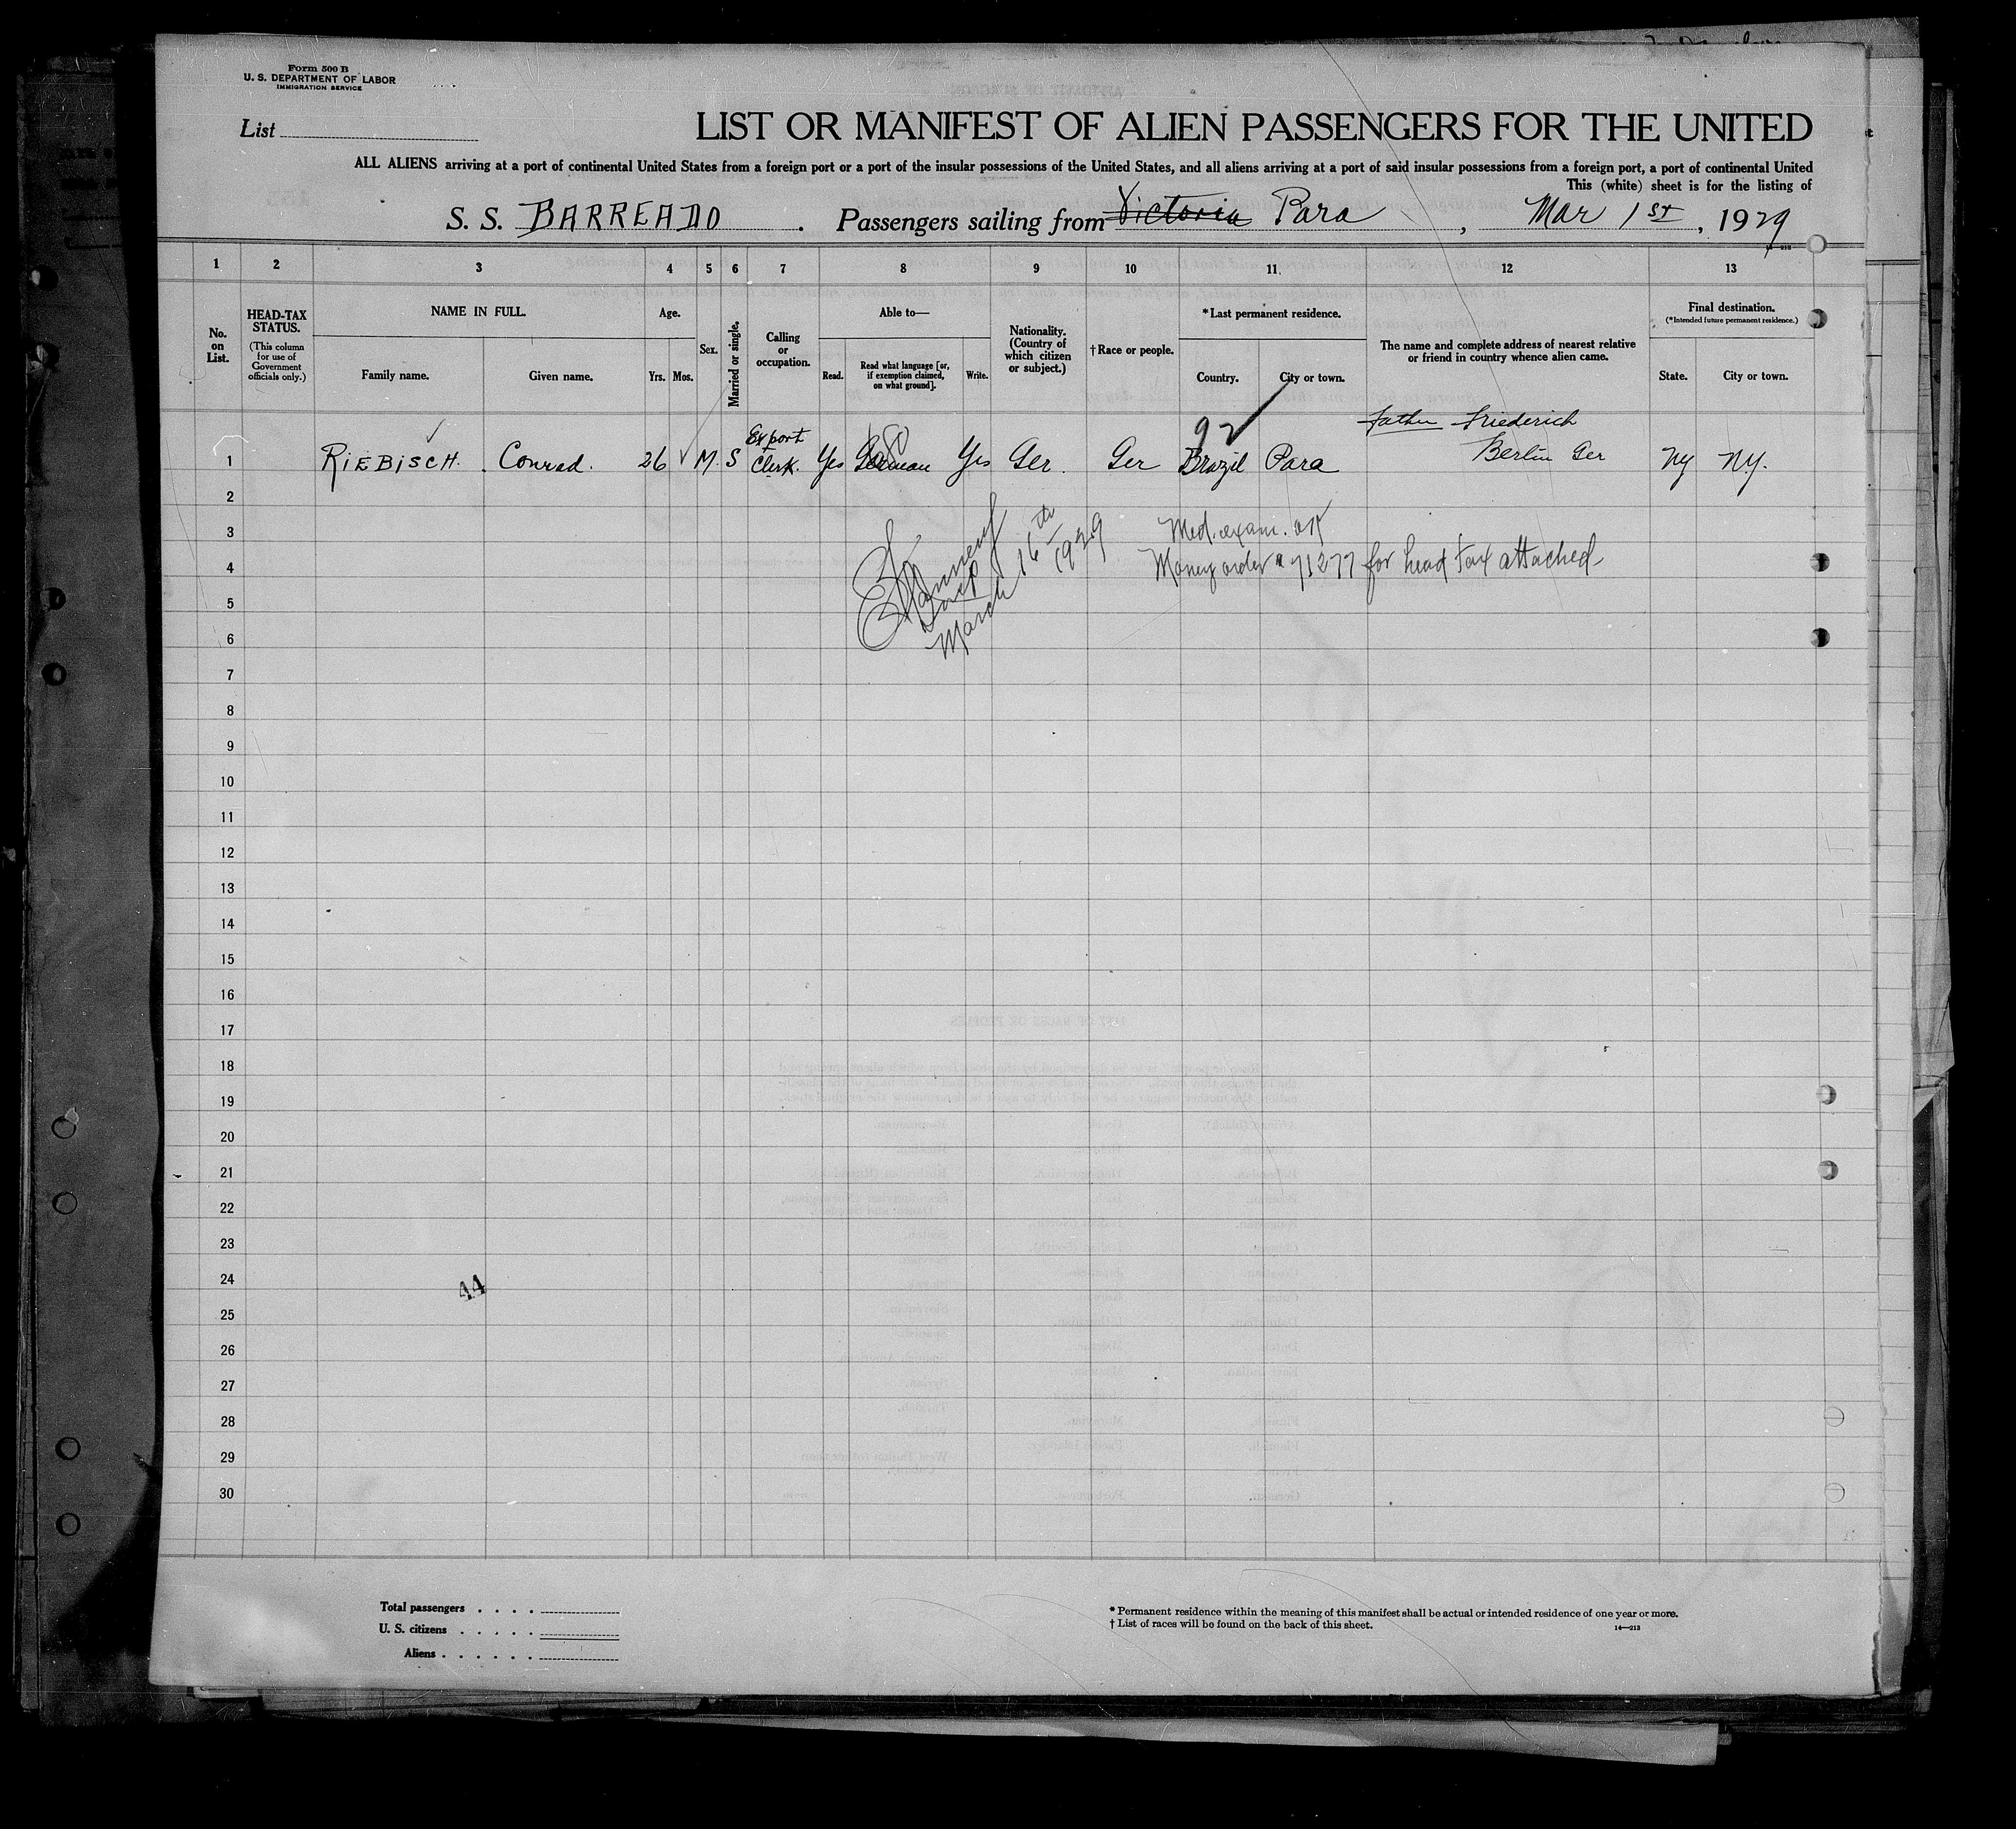 Form 500 B
U. S. DEPARTMENT OF LABOR
IMMIGRATION SERVICE
List
LIST OR MANIFEST OF ALIEN PASSENGERS FOR THE UNITED
ALL ALIENS arriving at a port of continental United States from a foreign port or a port of the insular possessions of the United States, and all aliens arriving at a port of said insular possessions from a foreign port, a port of continental United
This (white) sheet is for the listing of
S. S. BARREADO . Passengers sailing from Victoria Para , Mar 1st , 1929
1 2 3 4 5 6 7 8 9 10 11 12 13
No. on List.
HEAD-TAX STATUS.
(This column for use of Government officials only.)
NAME IN FULL.
Family name. Given name.
Age.
Yrs. Mos.
Sex.
Married or single.
Calling or occupation.
Able to—
Read. Read what language [or, if exemption claimed, on what ground]. Write.
Nationality. (Country of which citizen or subject.)
† Race or people.
* Last permanent residence.
Country. City or town.
The name and complete address of nearest relative or friend in country whence alien came.
Final destination.
(*Intended future permanent residence.)
State. City or town.
92
Father Friederich
1 RIEBISCH. Conrad. 26 M. S Export Clerk. Yes German Yes Ger. Ger Brazil Para Berlin Ger Ny N.Y.
2
3 Med. exam. OK
4 Money order # 71277 for head tax attached
Insp
March 16th 1929
5
6
7
8
9
10
11
12
13
14
15
16
17
18
19
20
21
22
23
24
44
25
26
27
28
29
30
Total passengers . . . .
U. S. citizens . . . . .
Aliens . . . . . .
* Permanent residence within the meaning of this manifest shall be actual or intended residence of one year or more.
† List of races will be found on the back of this sheet.
14—213